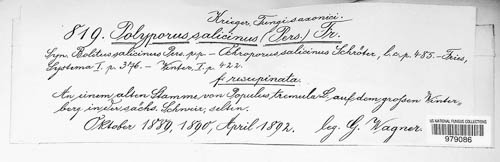 Krieger, Fungi saxonici.
819. Polyporus salicinus (Pers.) Fr.
Syn. Boletus salicinus Pers. p.p. - Ochroporus salicinus Schröter, l.c. p. 485. - Fries,
Systema I. p. 376. - Winter, I. p. 422.
f. resupinata.
An einem alten Stamme von Populus tremula L. auf dem großen Winter,
berg in der sächs. Schweiz, selten.
Oktober 1889, 1890, April 1892. leg. G. Wagner.
US NATIONAL FUNGUS COLLECTIONS
979086